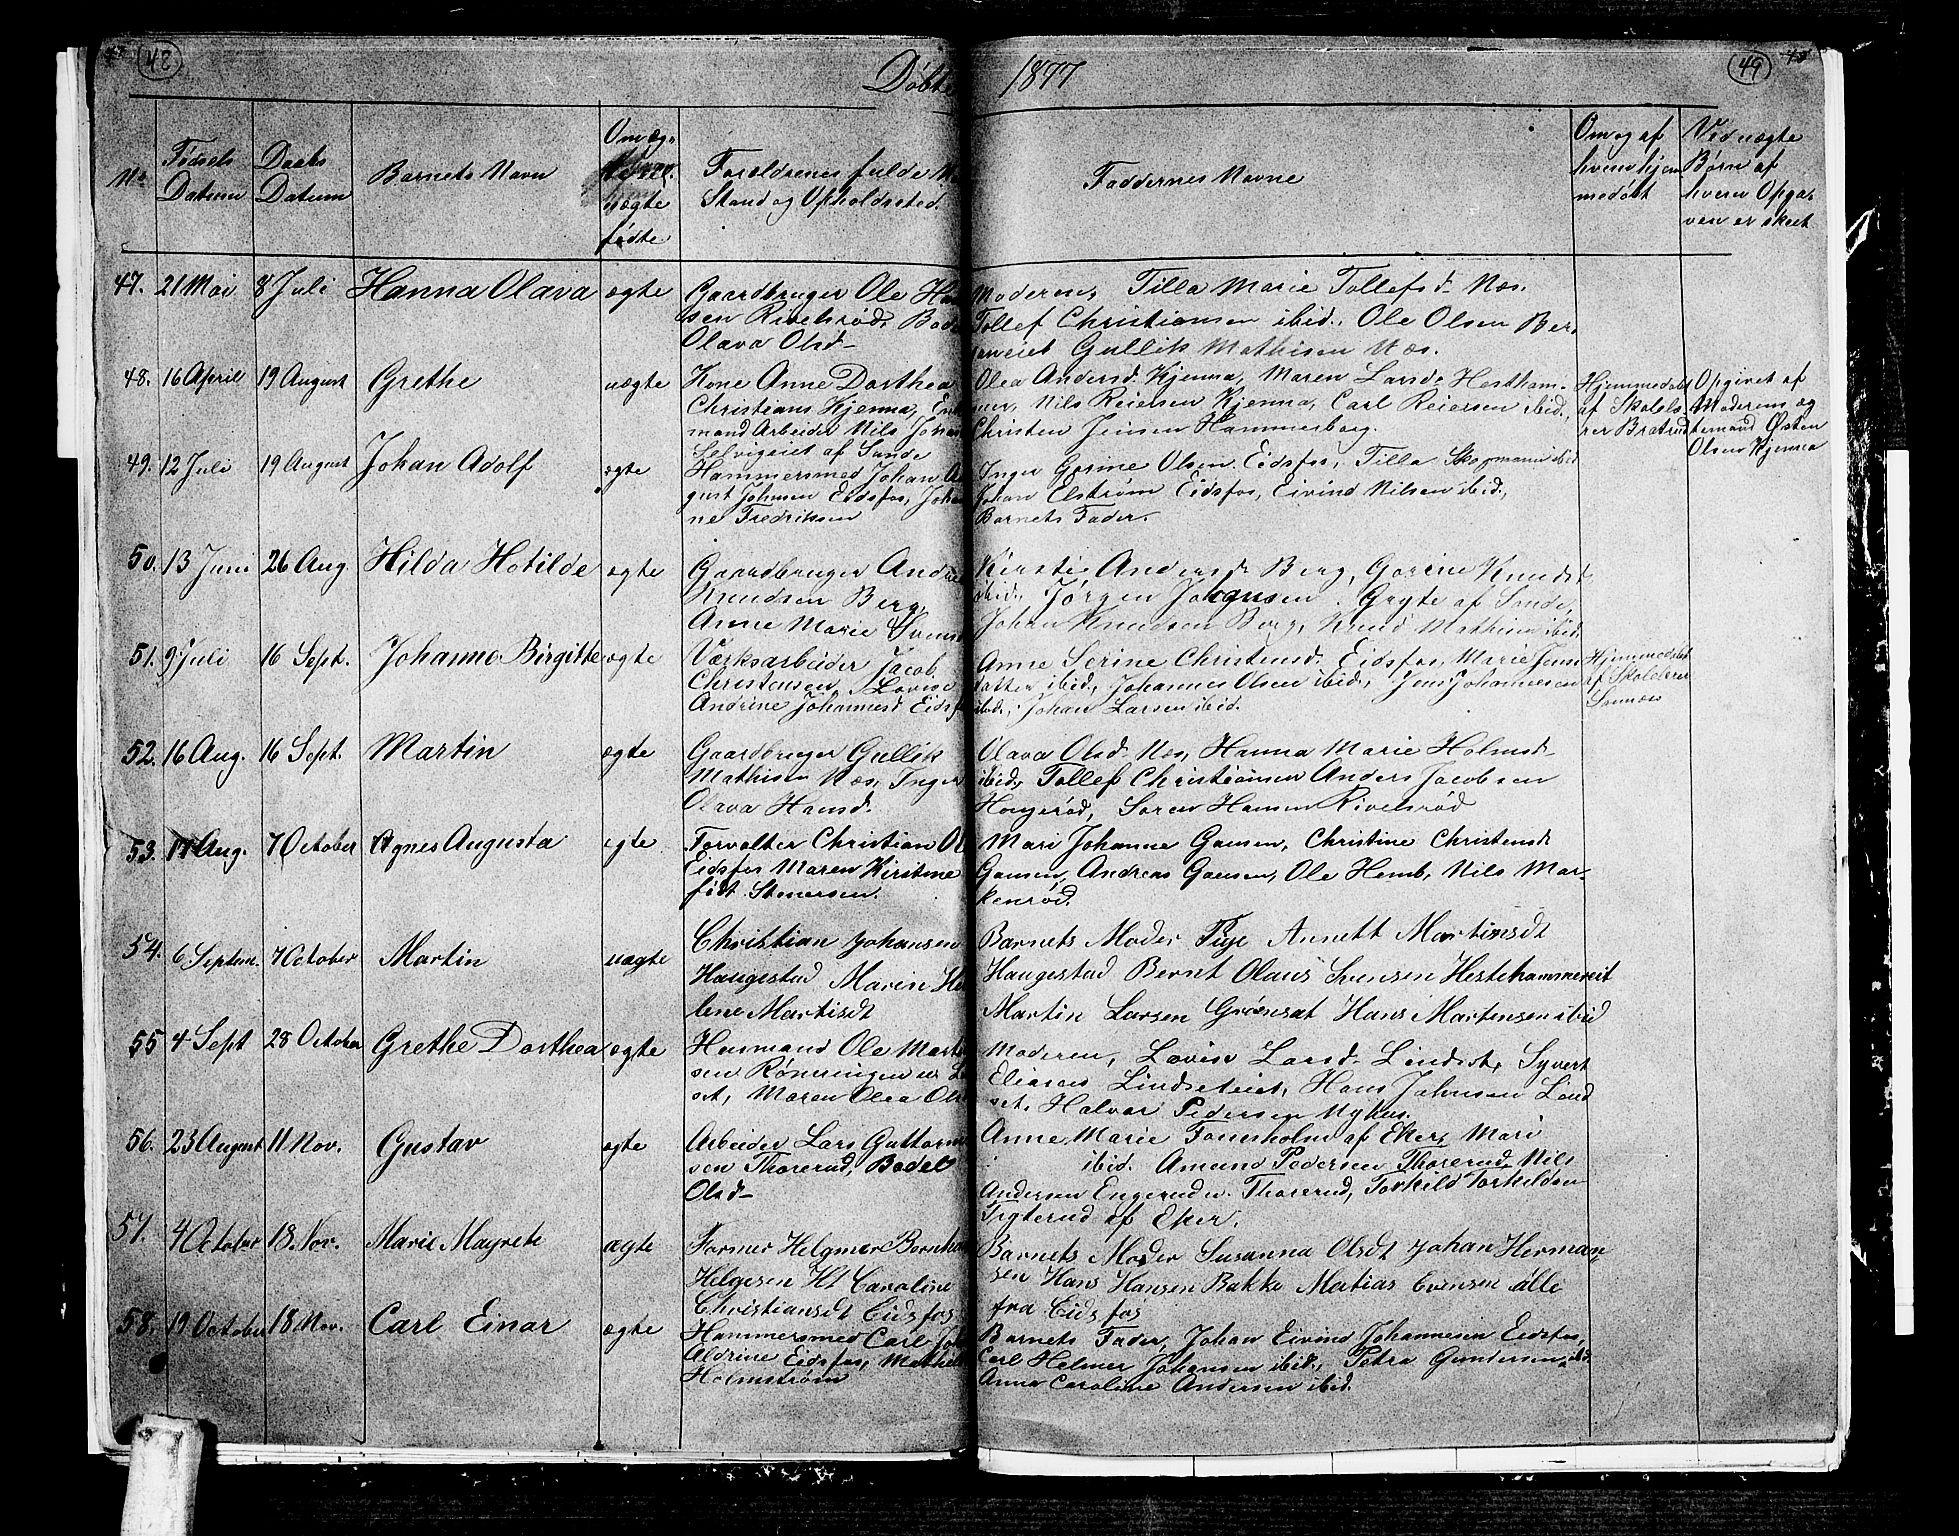 48
49
Døbte 1877
No
Fødsels Datum
Daabs Datum
Barnets Navn
Om ægte eller uægte fødte
Forældrenes fulde
Stand og Opholdsted.
Faddernes Navne
Om og af hvem hjemmedøbt
Ved uægte Børn af hvem Opgaven er skeet
47. 21 Mai 8 Juli Hanna Olava ægte
Gaardbruger Ole Han
sen Rivelsrød, Bod
Olava Olsd
Moderen, Tilla Marie Tollefsd Næs.
Tollef Christiansen ibid., Ole Olsen Ber
Gullik Mathisen Næs.
48. 16 April 19 August Grethe uægte
Kone Anne Dorthea
Christians Kjenna, Enke
mand Arbeider Nils Johan
Selvigeiet af Sande
Olea Andersd. Kjenna, Maren Larsd. Hestham-
mer, Nils Reiersen Kjenna, Carl Reiersen ibid.,
Christen Jensen Hammerborg.
Hjemmedøbt
af Skolelæ-
rer Bratrud
Opgivet af
Moderens æg
temand Østen
Olsen Kjenna
49. 12 Juli 19 August Johan Adolf ægte
Hammersmed Johan Au
gust Johnsen Eidsfos, Johan
ne Fredriksen
Inger Gorine Olsen Eidsfos, Tilla Skogmann ibid
Johan Elstrøm Eidsfos, Eivind Nilsen ibid.,
Barnets Fader.
50. 13 Juni 26 Aug. Hilda Hotilde ægte
Gaardbruger Andre
Knudsen Berg,
Anne Marie Svens
Kirstie Andersd. Berg, Gorine Knudsd
ibid., Jørgen Johansen Gryte af Sande,
Johan Knudsen Berg, Knud Mathisen ibid.
51. 9 Juli 16 Sept. Johanne Birgitte ægte
Værksarbeider Jacob
Christensen, Lovise
Andrine Johannesd Eidsfos
Anne Serine Christensd. Eidsfos, Marie Jens
datter ibid., Johannes Olsen ibid., Jens Johannesen
ibid., Johan Larsen ibid.
Hjemmedøbt
af Skolelærer
52. 16 Aug. 16 Sept. Martin ægte
Gaardbruger Gullik
Mathisen Næs, Inger
Olava Hansd.
Olava Olsd Næs, Hanna Marie Holmsd
ibid., Tollef Christiansen Anders Jacobsen
Hougerød, Søren Hansen Rivelsrød
53. 17 Aug. 7 October Agnes Augusta ægte
Forvalter Christian Ol
Eidsfos Maren Kirstine
født Stenersen.
Mari Johanne Gausen, Christine Christensd
Gausen, Andreas Gausen, Ole Hemb, Nils Mar-
kenrød.
54. 6 Septem. 7 October Martin uægte
Christian Johansen
Haugestad Maren He
lene Martisdt
Barnets Moder Pige Annett Martinsdt
Haugestad Bernt Olaus Svensen Hestehammereit
Martin Larsen Grønsat Hans Martensen ibid
55 4 Sept 28 October Grethe Dorthea ægte
Husmand Ole Mart
sen Rønningen u L
set, Maren Olea Ols
Moderen, Lovise Larsd. Lindset, Syvert
Eliasen Lindseteiet, Hans Johnsen Lind
set, Halvor Pedersen Nyhus.
56. 23 August 11 Nov. Gustav ægte
Arbeider Lars Guttorm
sen Thorerud, Bodel
Olsd
Anne Marie Fouesholm af Eker, Mari
ibid. Amund Pedersen Thorerud, Nils
Andersen Engerud u. Thorerud, Torkild Torkildsen
Tigterud af Eker.
57. 4 October 18. Nov. Marie Magrete ægte
Former Helgmer Bernha
Helgesen H Caroline
Christiansdt Eidsfos
Barnets Moder Susanna Olsdt Johan Herman
sen Hans Hansen Bakke Matias Evensen alle
fra Eidsfos
58. 19 October 18 Nov. Carl Einar ægte
Hammersmed Carl Joh
Aldrine Eidsfos, Mathil
Holmstrøm
Barnets Fader, Johan Eivind Johannesen Eidsfos,
Carl Helmer Johansen ibid., Petra Gundersen ibid.
Anna Caroline Andersen ibid.